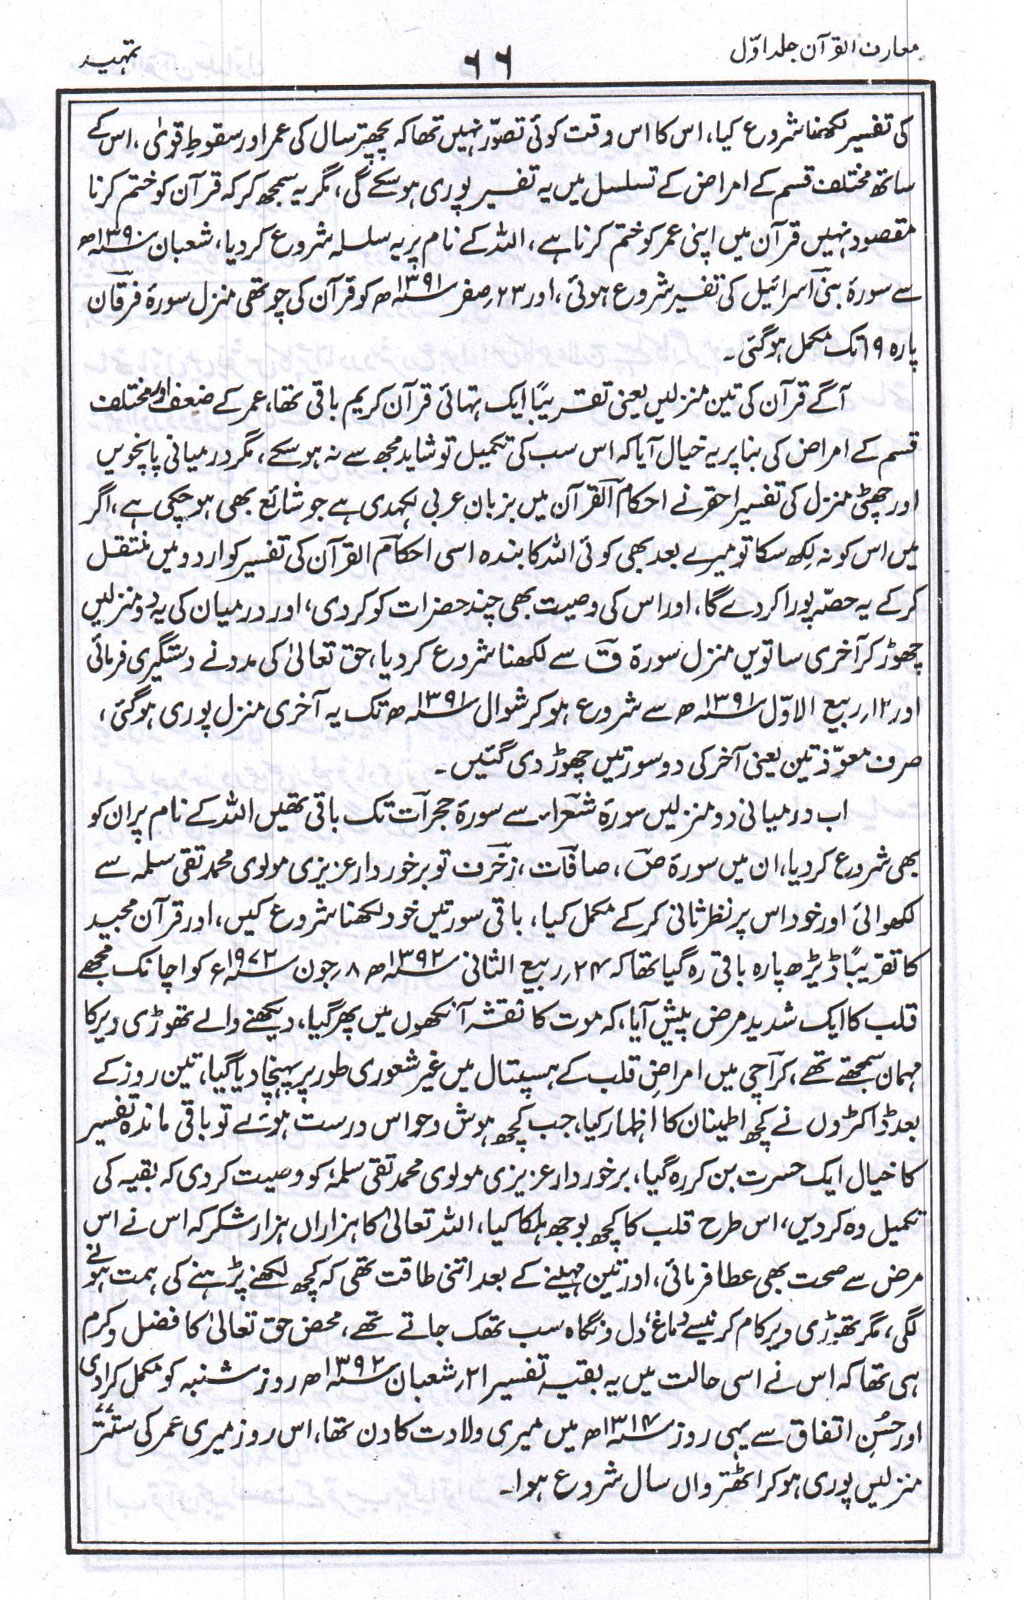 معارف القرآن جلد اوّل
۶۶
تمہید
کی تفسیر لکھنا شروع کیا، اس کا اس وقت کوئی تصوّر نہیں تھا کہ پچھتر سال کی عمر اور سقوطِ قویٰ، اس کے
ساتھ مختلف قسم کے امراض کے تسلسل میں یہ تفسیر پوری ہو سکے گی، مگر یہ سمجھ کر کہ قرآن کو ختم کرنا
مقصود نہیں قرآن میں اپنی عمر کو ختم کرنا ہے، اللہ کے نام پر یہ سلسلہ شروع کر دیا، شعبان ۱۳۹۰ھ
سے سورۂ بنی اسرائیل کی تفسیر شروع ہوئی، اور ۲۳؍صفر ۱۳۹۱ھ کو قرآن کی چوتھی منزل سورۂ فرقان
پارہ ۱۹ تک مکمل ہو گئی۔
آگے قرآن کی تین منزلیں یعنی تقریبًا ایک تہائی قرآن کریم باقی تھا، عمر کے ضعف اور مختلف
قسم کے امراض کی بنا پر یہ خیال آیا کہ اس سب کی تکمیل تو شاید مجھ سے نہ ہو سکے، مگر درمیانی پانچویں
اور چھٹی منزل کی تفسیر احقر نے احکام القرآن میں بزبان عربی لکھدی ہے جو شائع بھی ہو چکی ہے، اگر
میں اس کو نہ لکھ سکا تو میرے بعد بھی کوئی اللہ کا بندہ اسی احکام القرآن کی تفسیر کو اردو میں منتقل
کر کے یہ حصّہ پورا کر دے گا، اور اس کی وصیت بھی چند حضرات کو کر دی، اور درمیان کی یہ دو منزلیں
چھوڑ کر آخری ساتویں منزل سورۂ قٓ سے لکھنا شروع کر دیا، حق تعالیٰ کی مدد نے دستگیری فرمائی
اور ۱۲؍ ربیع الاوّل ۱۳۹۱ھ سے شروع ہو کر شوال ۱۳۹۱ھ تک یہ آخری منزل پوری ہو گئی،
صرف معوّذتین یعنی آخر کی دو سورتیں چھوڑ دی گئیں۔
اب درمیانی دو منزلیں سورۂ شعراء سے سورۂ حجرات تک باقی تھیں اللہ کے نام پر ان کو
بھی شروع کر دیا، ان میں سورۂ صٓ، صافات، زخرف تو برخوردار عزیزی مولوی محمد تقی سلمہ سے
لکھوائی اور خود اس پر نظر ثانی کر کے مکمل کیا، باقی سورتیں خود لکھنا شروع کیں، اور قرآن مجید
کا تقریبًا ڈیڑھ پارہ باقی رہ گیا تھا کہ ۲۴؍ ربیع الثانی ۱۳۹۲ھ ۸؍جون ۱۹۷۲ء کو اچانک مجھے
قلب کا ایک شدید مرض پیش آیا، کہ موت کا نقشہ آنکھوں میں پھر گیا، دیکھنے والے تھوڑی دیر کا
مہمان سمجھتے تھے، کراچی میں امراضِ قلب کے ہسپتال میں غیر شعوری طور پر پہنچا دیا گیا، تین روز کے
بعد ڈاکٹروں نے کچھ اطینان کا اظہار کیا، جب کچھ ہوش و حواس درست ہوئے تو باقی ماندہ تفسیر
کا خیال ایک حسرت بن کر رہ گیا، برخوردار عزیزی مولوی محمد تقی سلمہٗ کو وصیت کر دی کہ بقیہ کی
تکمیل وہ کر دیں، اس طرح قلب کا کچھ بوجھ ہلکا کیا، اللہ تعالیٰ کا ہزاراں ہزار شکر کہ اس نے اس
مرض سے صحت بھی عطا فرمائی، اور تین مہینے کے بعد اتنی طاقت تھی کہ کچھ لکھنے پڑہنے کی ہمت ہونے
لگی، مگر تھوڑی دیر کام کرنیسے دماغ، دل و نگاہ سب تھک جاتے تھے، محض حق تعالیٰ کا فضل و کرم
ہی تھا کہ اس نے اسی حالت میں یہ بقیہ تفسیر ۲۱؍ شعبان ۱۳۹۲ھ روز شنبہ کو مکمل کرا دی
اور حُسنِ اتفاق سے یہی روز ۱۳۱۴ھ میں میری ولادت کا دن تھا، اس روز میری عمر کی ستتّر
منزلیں پوری ہو کر اٹھتّرواں سال شروع ہوا۔